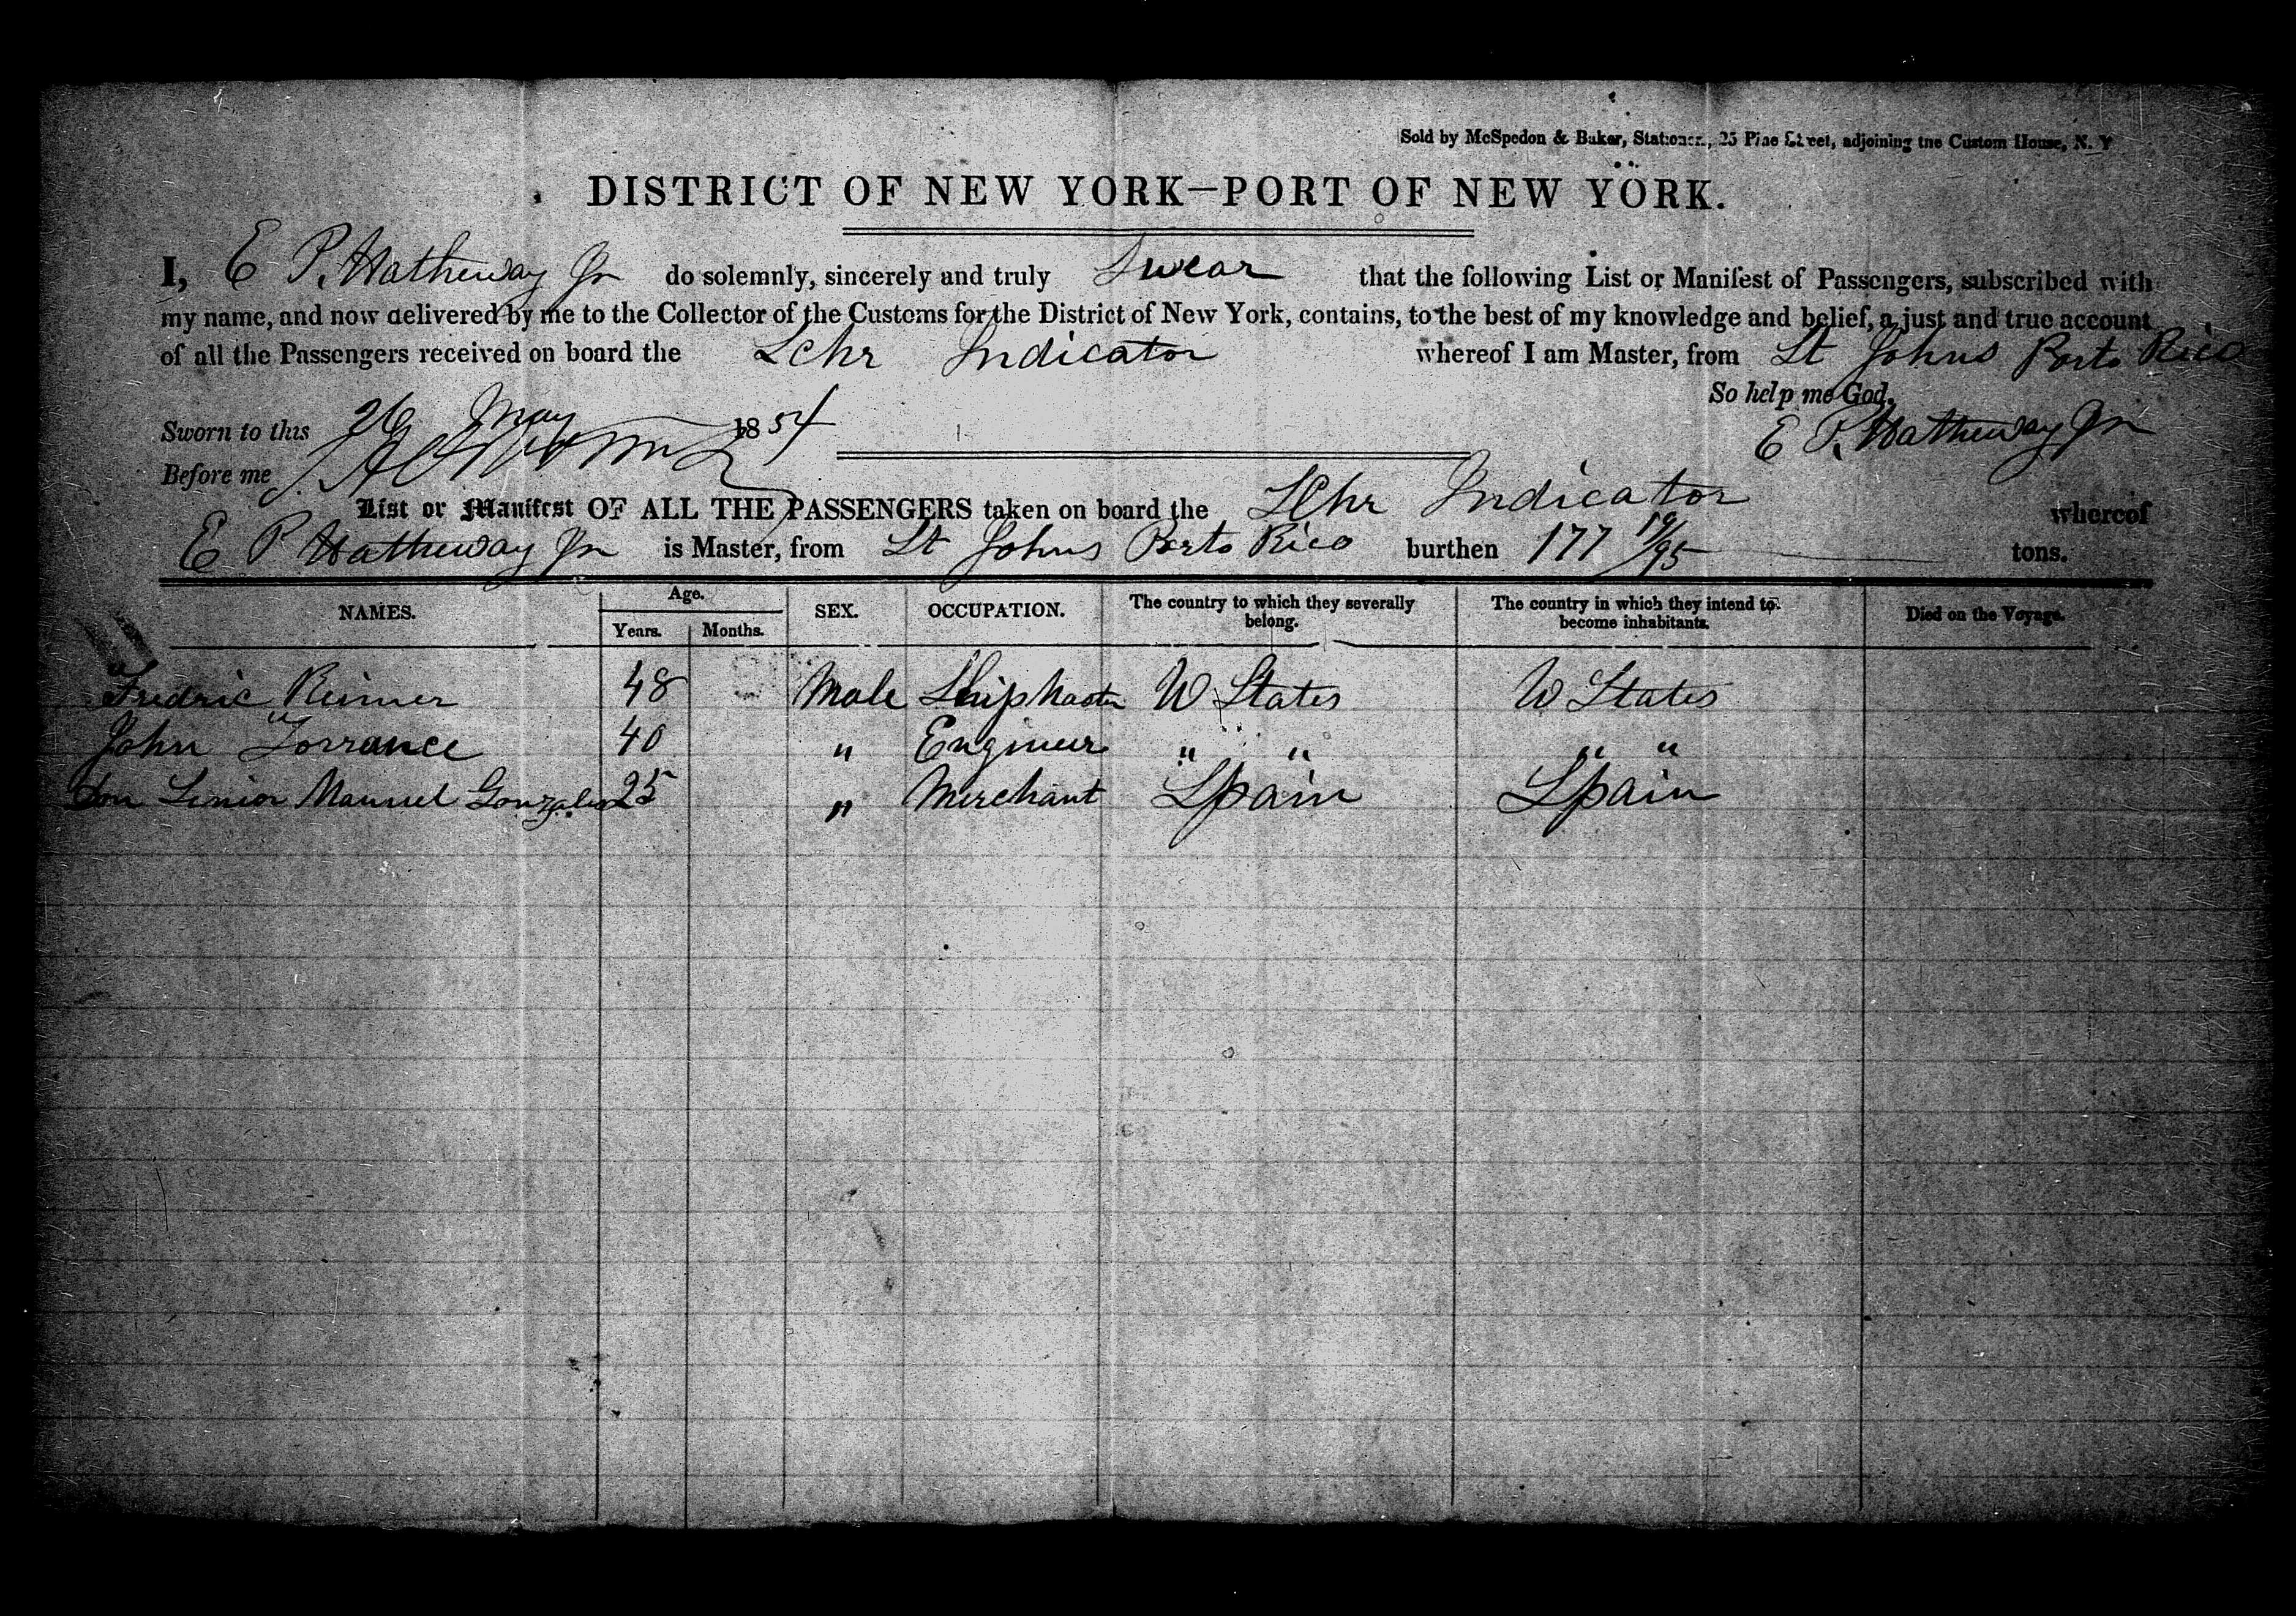 Sold by McSpedon & Baker, Stationers, 25 Pine Street, adjoining the Custom House, N. Y
DISTRICT OF NEW YORK—PORT OF NEW YORK.
I, E P. Hatheway Jr do solemnly, sincerely and truly Swear that the following List or Manifest of Passengers, subscribed with
my name, and now delivered by me to the Collector of the Customs for the District of New York, contains, to the best of my knowledge and belief, a just and true account
of all the Passengers received on board the Schr Indicator whereof I am Master, from St Johns Porto Rico
So help me God.
Sworn to this 26 May 1854 E P. Hatheway Jr
Before me
List or Manifest OF ALL THE PASSENGERS taken on board the Schr Indicator whereof
E P Hatheway Jr is Master, from St Johns Porto Rico burthen 177 19/95 tons.
NAMES. Age. Years. Months. SEX. OCCUPATION. The country to which they severally belong. The country in which they intend to become inhabitants. Died on the Voyage.
Fredric Reimer 48 Male Ship Master U States U States
John Torrance 40 " Engineer " " " "
Don Senior Manuel Gonzales 25 " Merchant Spain Spain